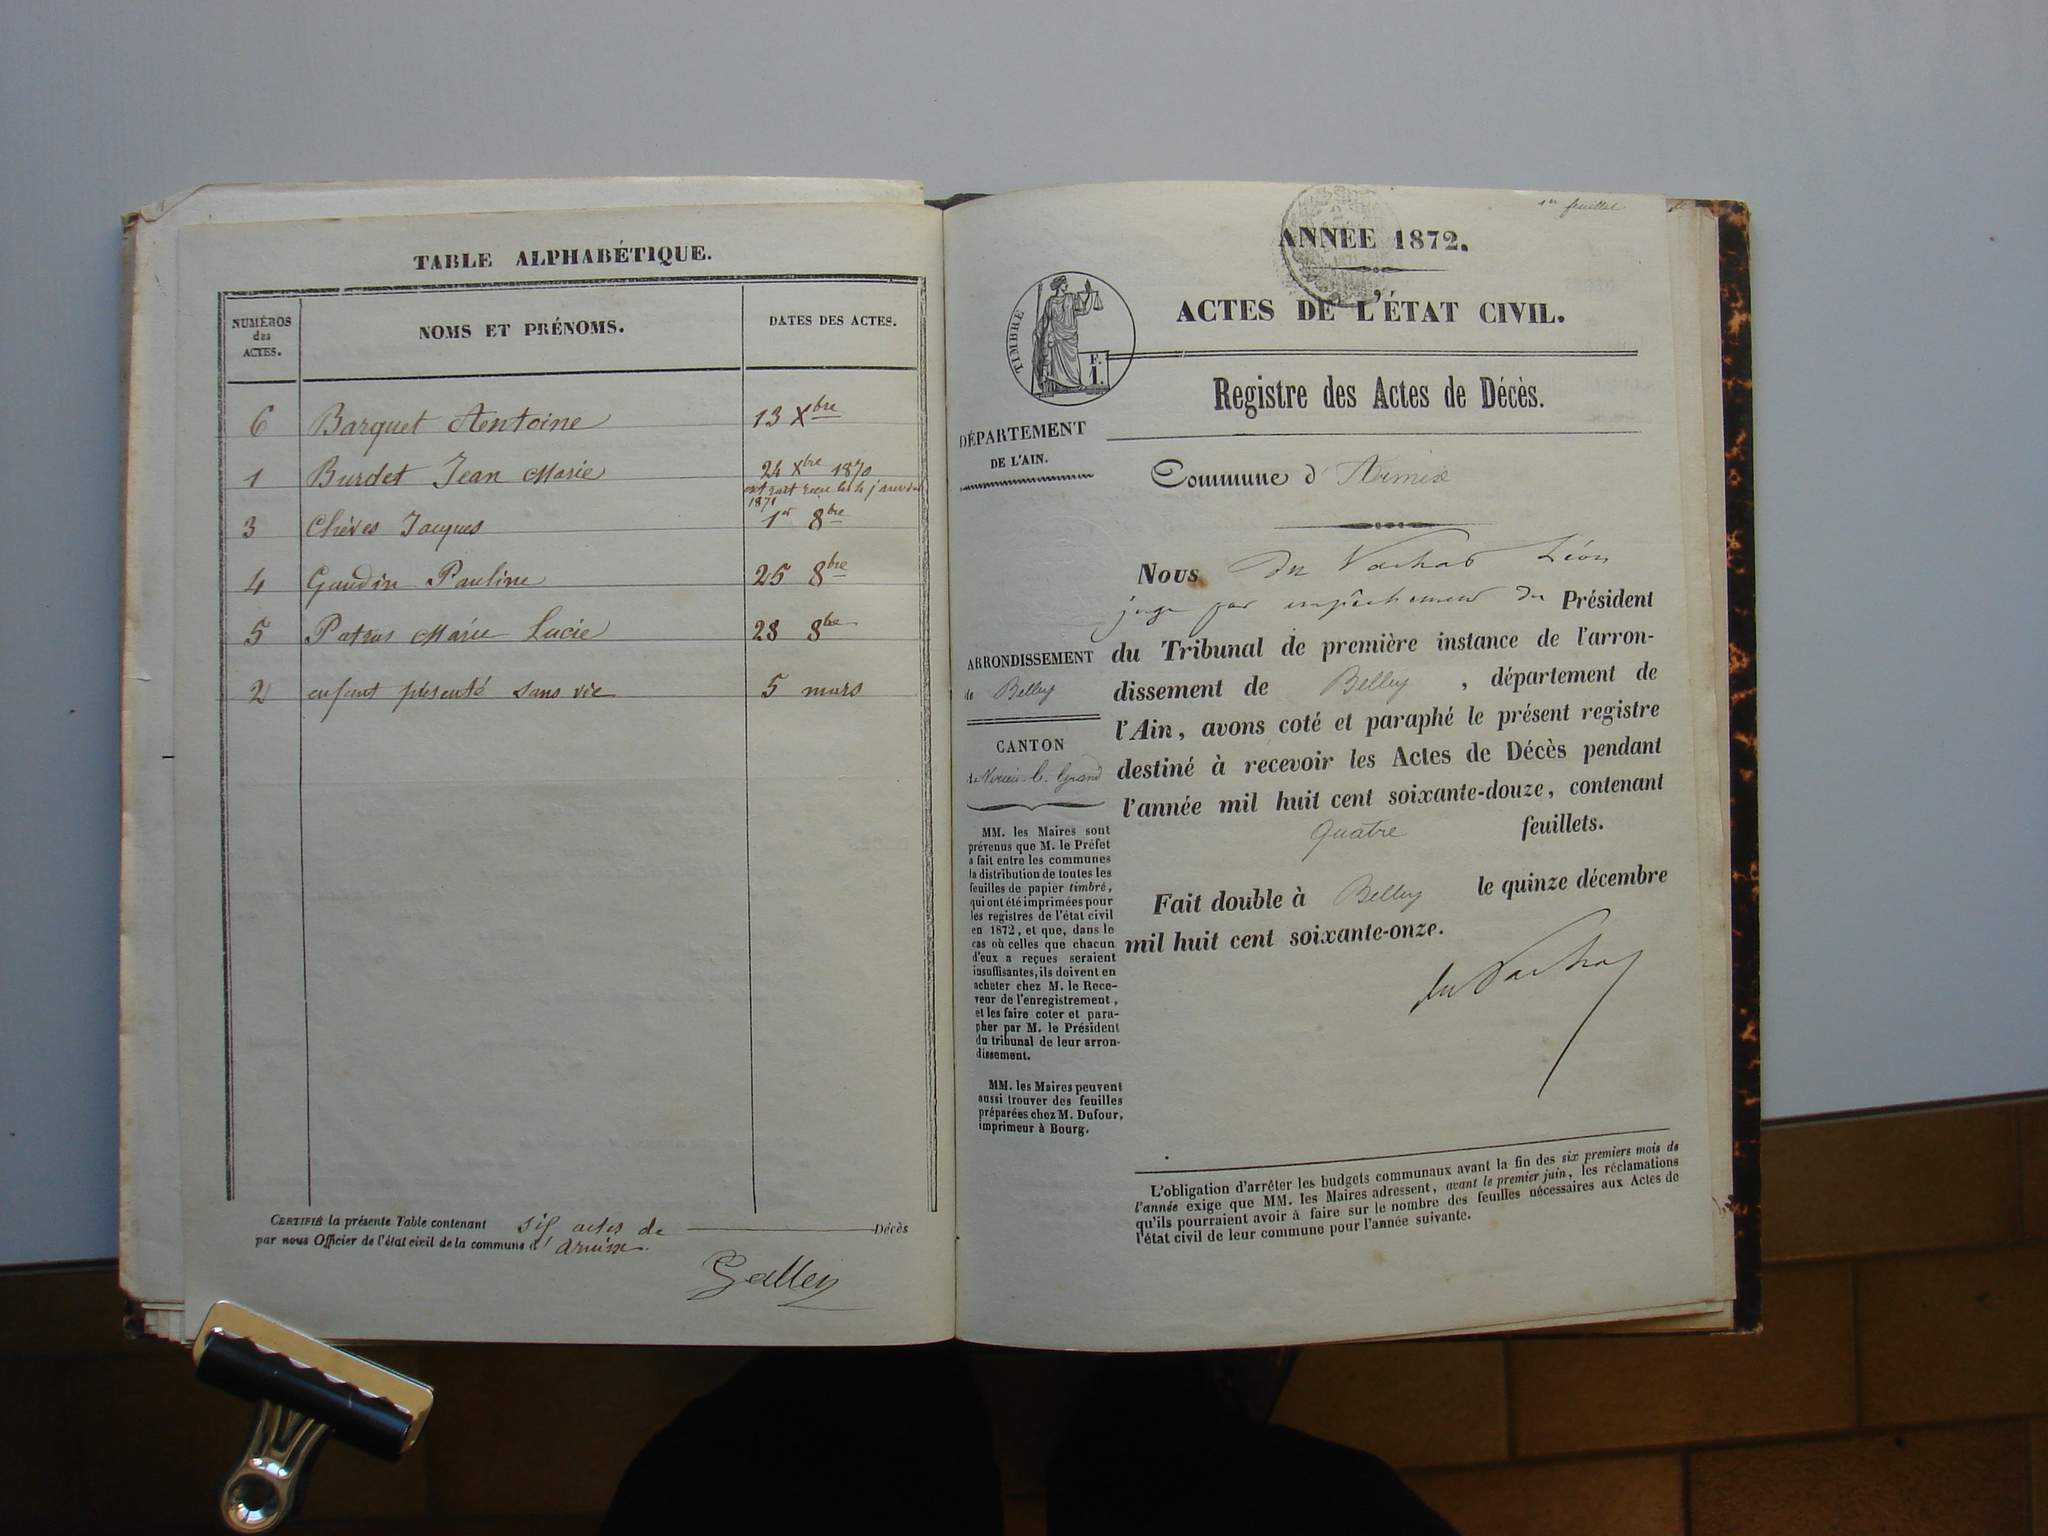 TABLE ALPHABÉTIQUE.
NUMÉROS des ACTES.
NOMS ET PRÉNOMS.
DATES DES ACTES.
6 Barquet Antoine 13 Xbre
1 Burdet Jean Marie 24 Xbre 1870
janvier
1871
3 Chèves Jacques 1er 8bre
4 Gaudin Pauline 25 8bre
5 Marie Lucie 28 8bre
2 enfant présenté sans vie 5 mars
CERTIFIÉ la présente Table contenant six actes de Décès
par nous Officier de l'état civil de la commune d'
1er feuillet
ANNÉE 1872.
ACTES DE L'ÉTAT CIVIL.
TIMBRE
F.
1.
Registre des Actes de Décès.
DÉPARTEMENT
DE L'AIN.
Commune d' Armix
Nous du Léon
juge par empêchement du Président
du Tribunal de première instance de l'arron-
dissement de Belley, département de
l'Ain, avons coté et paraphé le présent registre
destiné à recevoir les Actes de Décès pendant
l'année mil huit cent soixante-douze, contenant
quatre feuillets.
Fait double à Belley le quinze décembre
mil huit cent soixante-onze.
ARRONDISSEMENT
de Belley
CANTON
de Virieu-le-Grand
MM. les Maires sont
prévenus que M. le Préfet
a fait entre les communes
la distribution de toutes les
feuilles de papier timbré,
qui ont été imprimées pour
les registres de l'état civil
en 1872, et que, dans le
cas où celles que chacun
d'eux a reçues seraient
insuffisantes, ils doivent en
acheter chez M. le Rece-
veur de l'enregistrement,
et les faire coter et para-
pher par M. le Président
du tribunal de leur arron-
dissement.
MM. les Maires peuvent
aussi trouver des feuilles
préparées chez M. Dufour,
imprimeur à Bourg.
L'obligation d'arrêter les budgets communaux avant la fin des six premiers mois de
l'année exige que MM. les Maires adressent, avant le premier juin, les réclamations
qu'ils pourraient avoir à faire sur le nombre des feuilles nécessaires aux Actes de
l'état civil de leur commune pour l'année suivante.